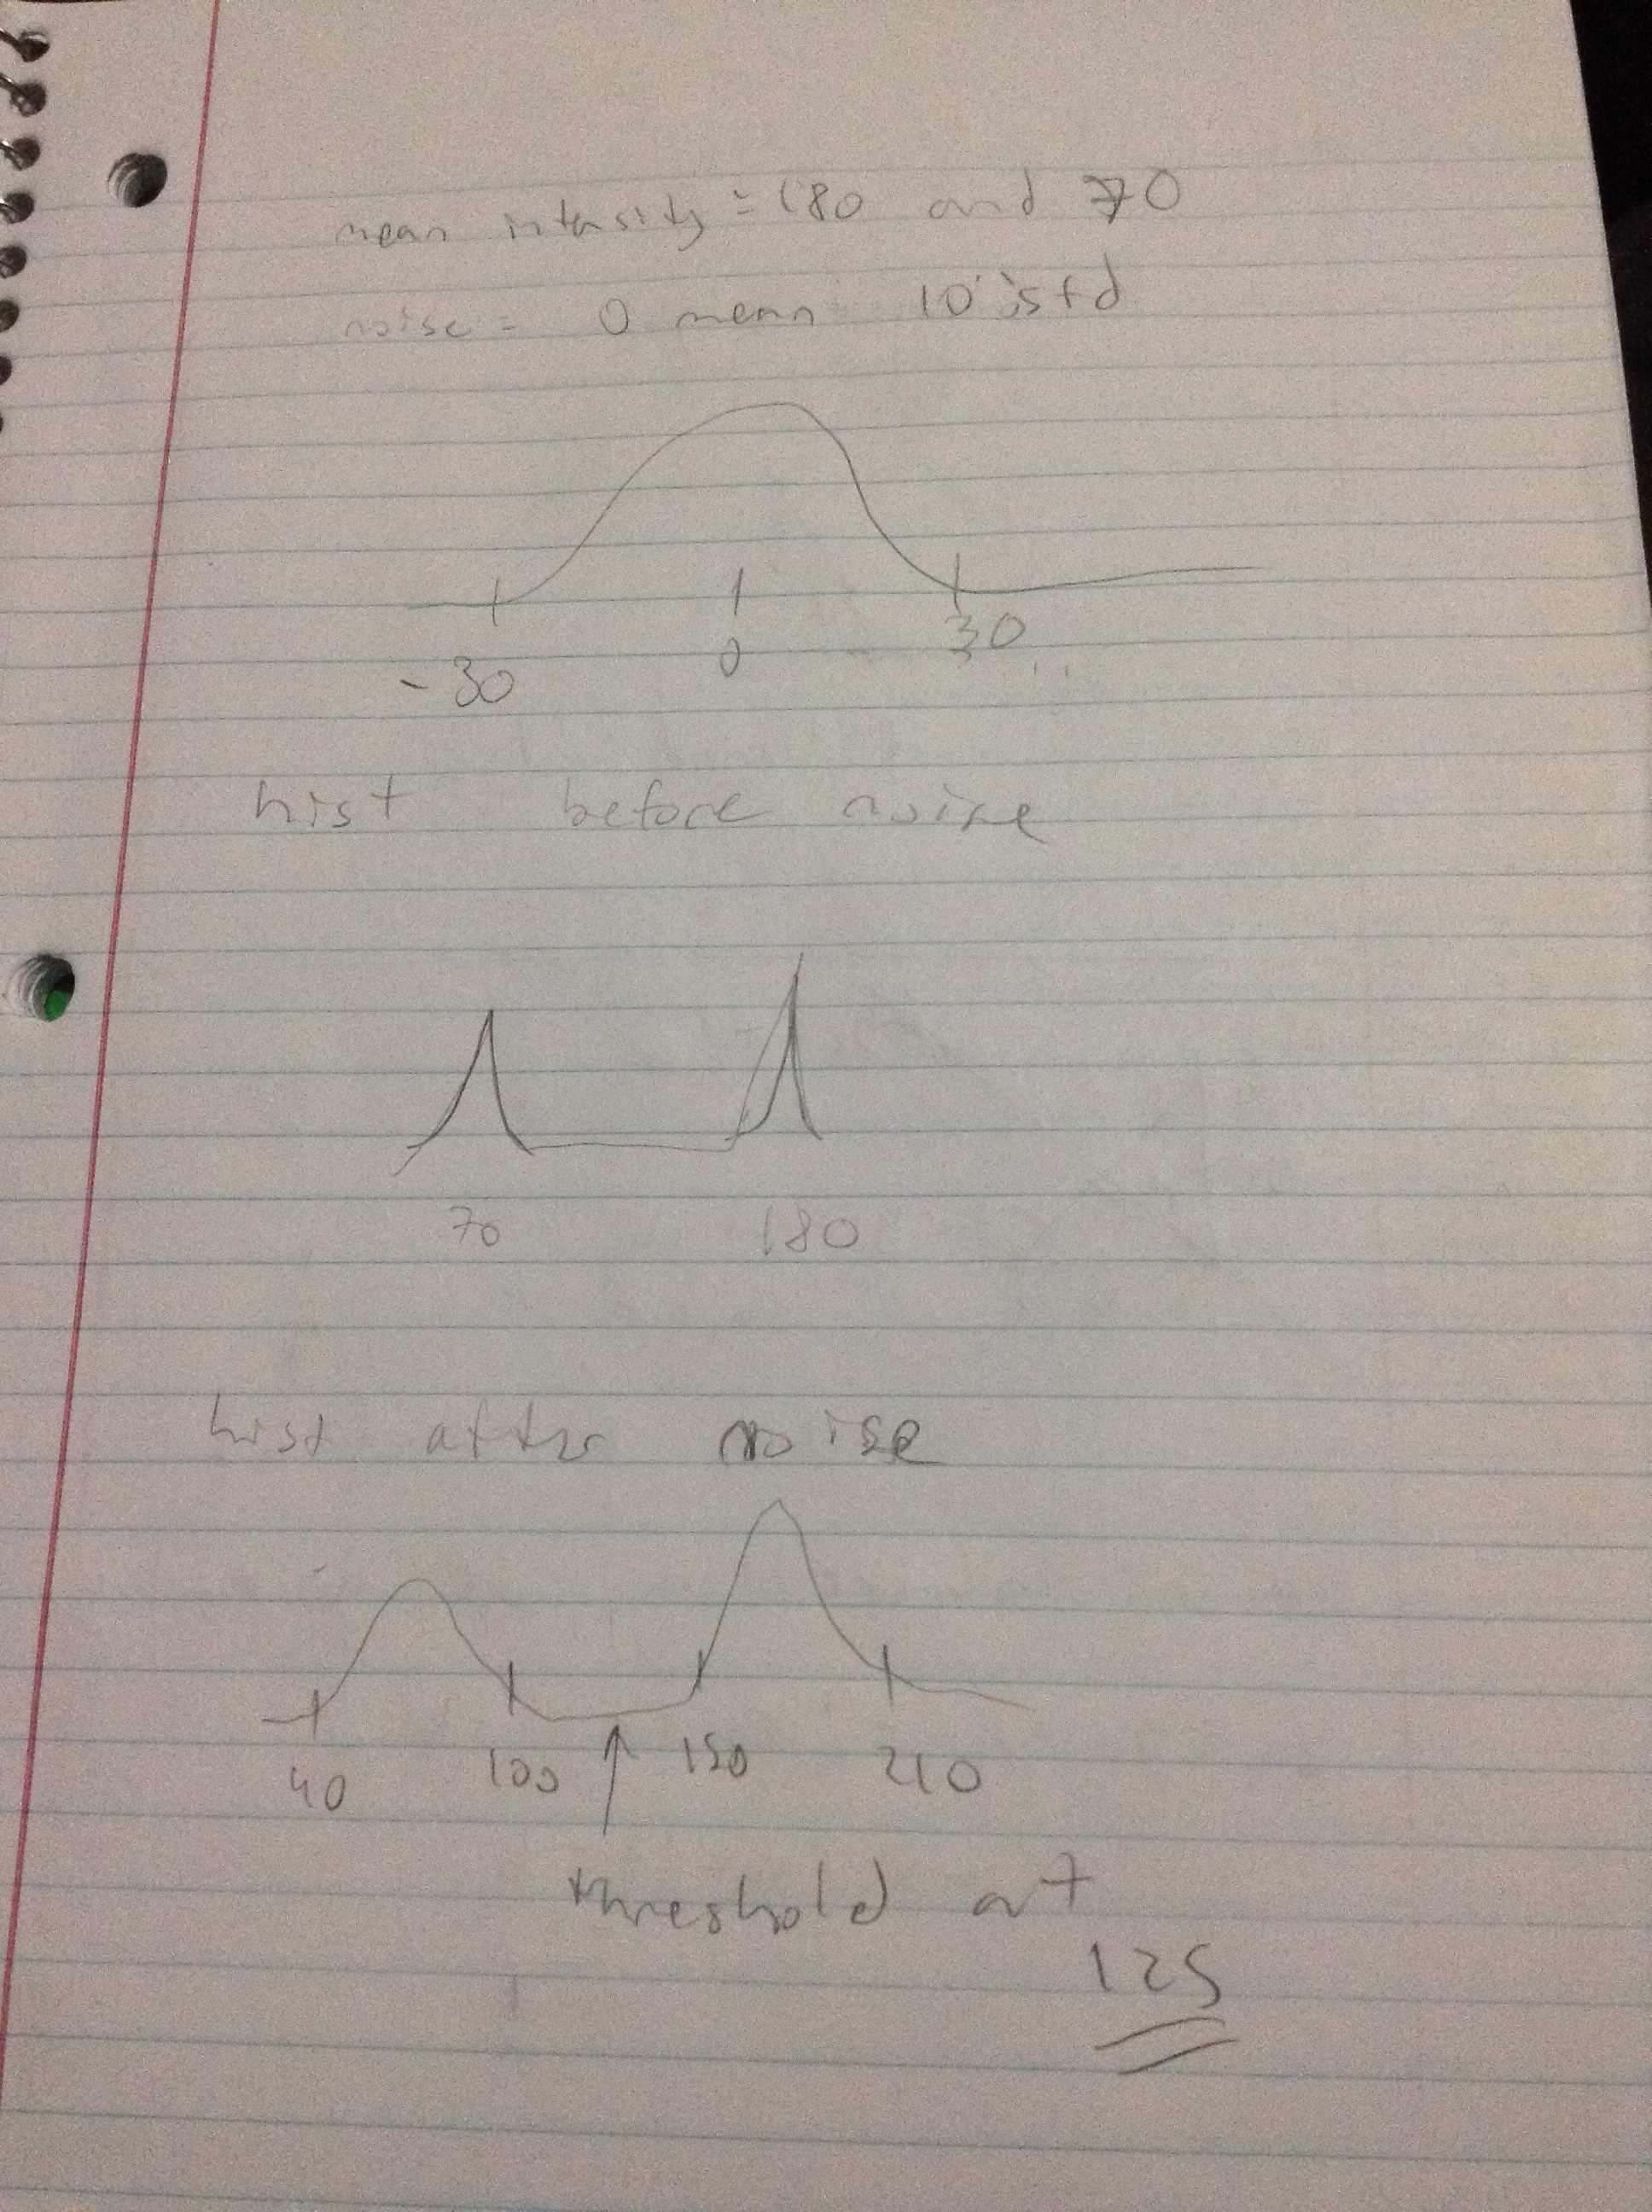 mean intensity = 180 and 70
noise = 0 mean 10 std
-30 0 30
hist before noise
70 180
hist after noise
40 100 150 210
threshold at
125